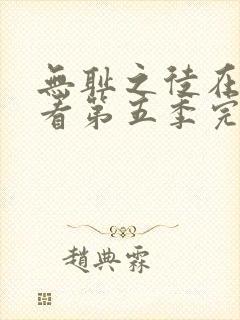 無耻之徒在
看第五季完
趙典霖